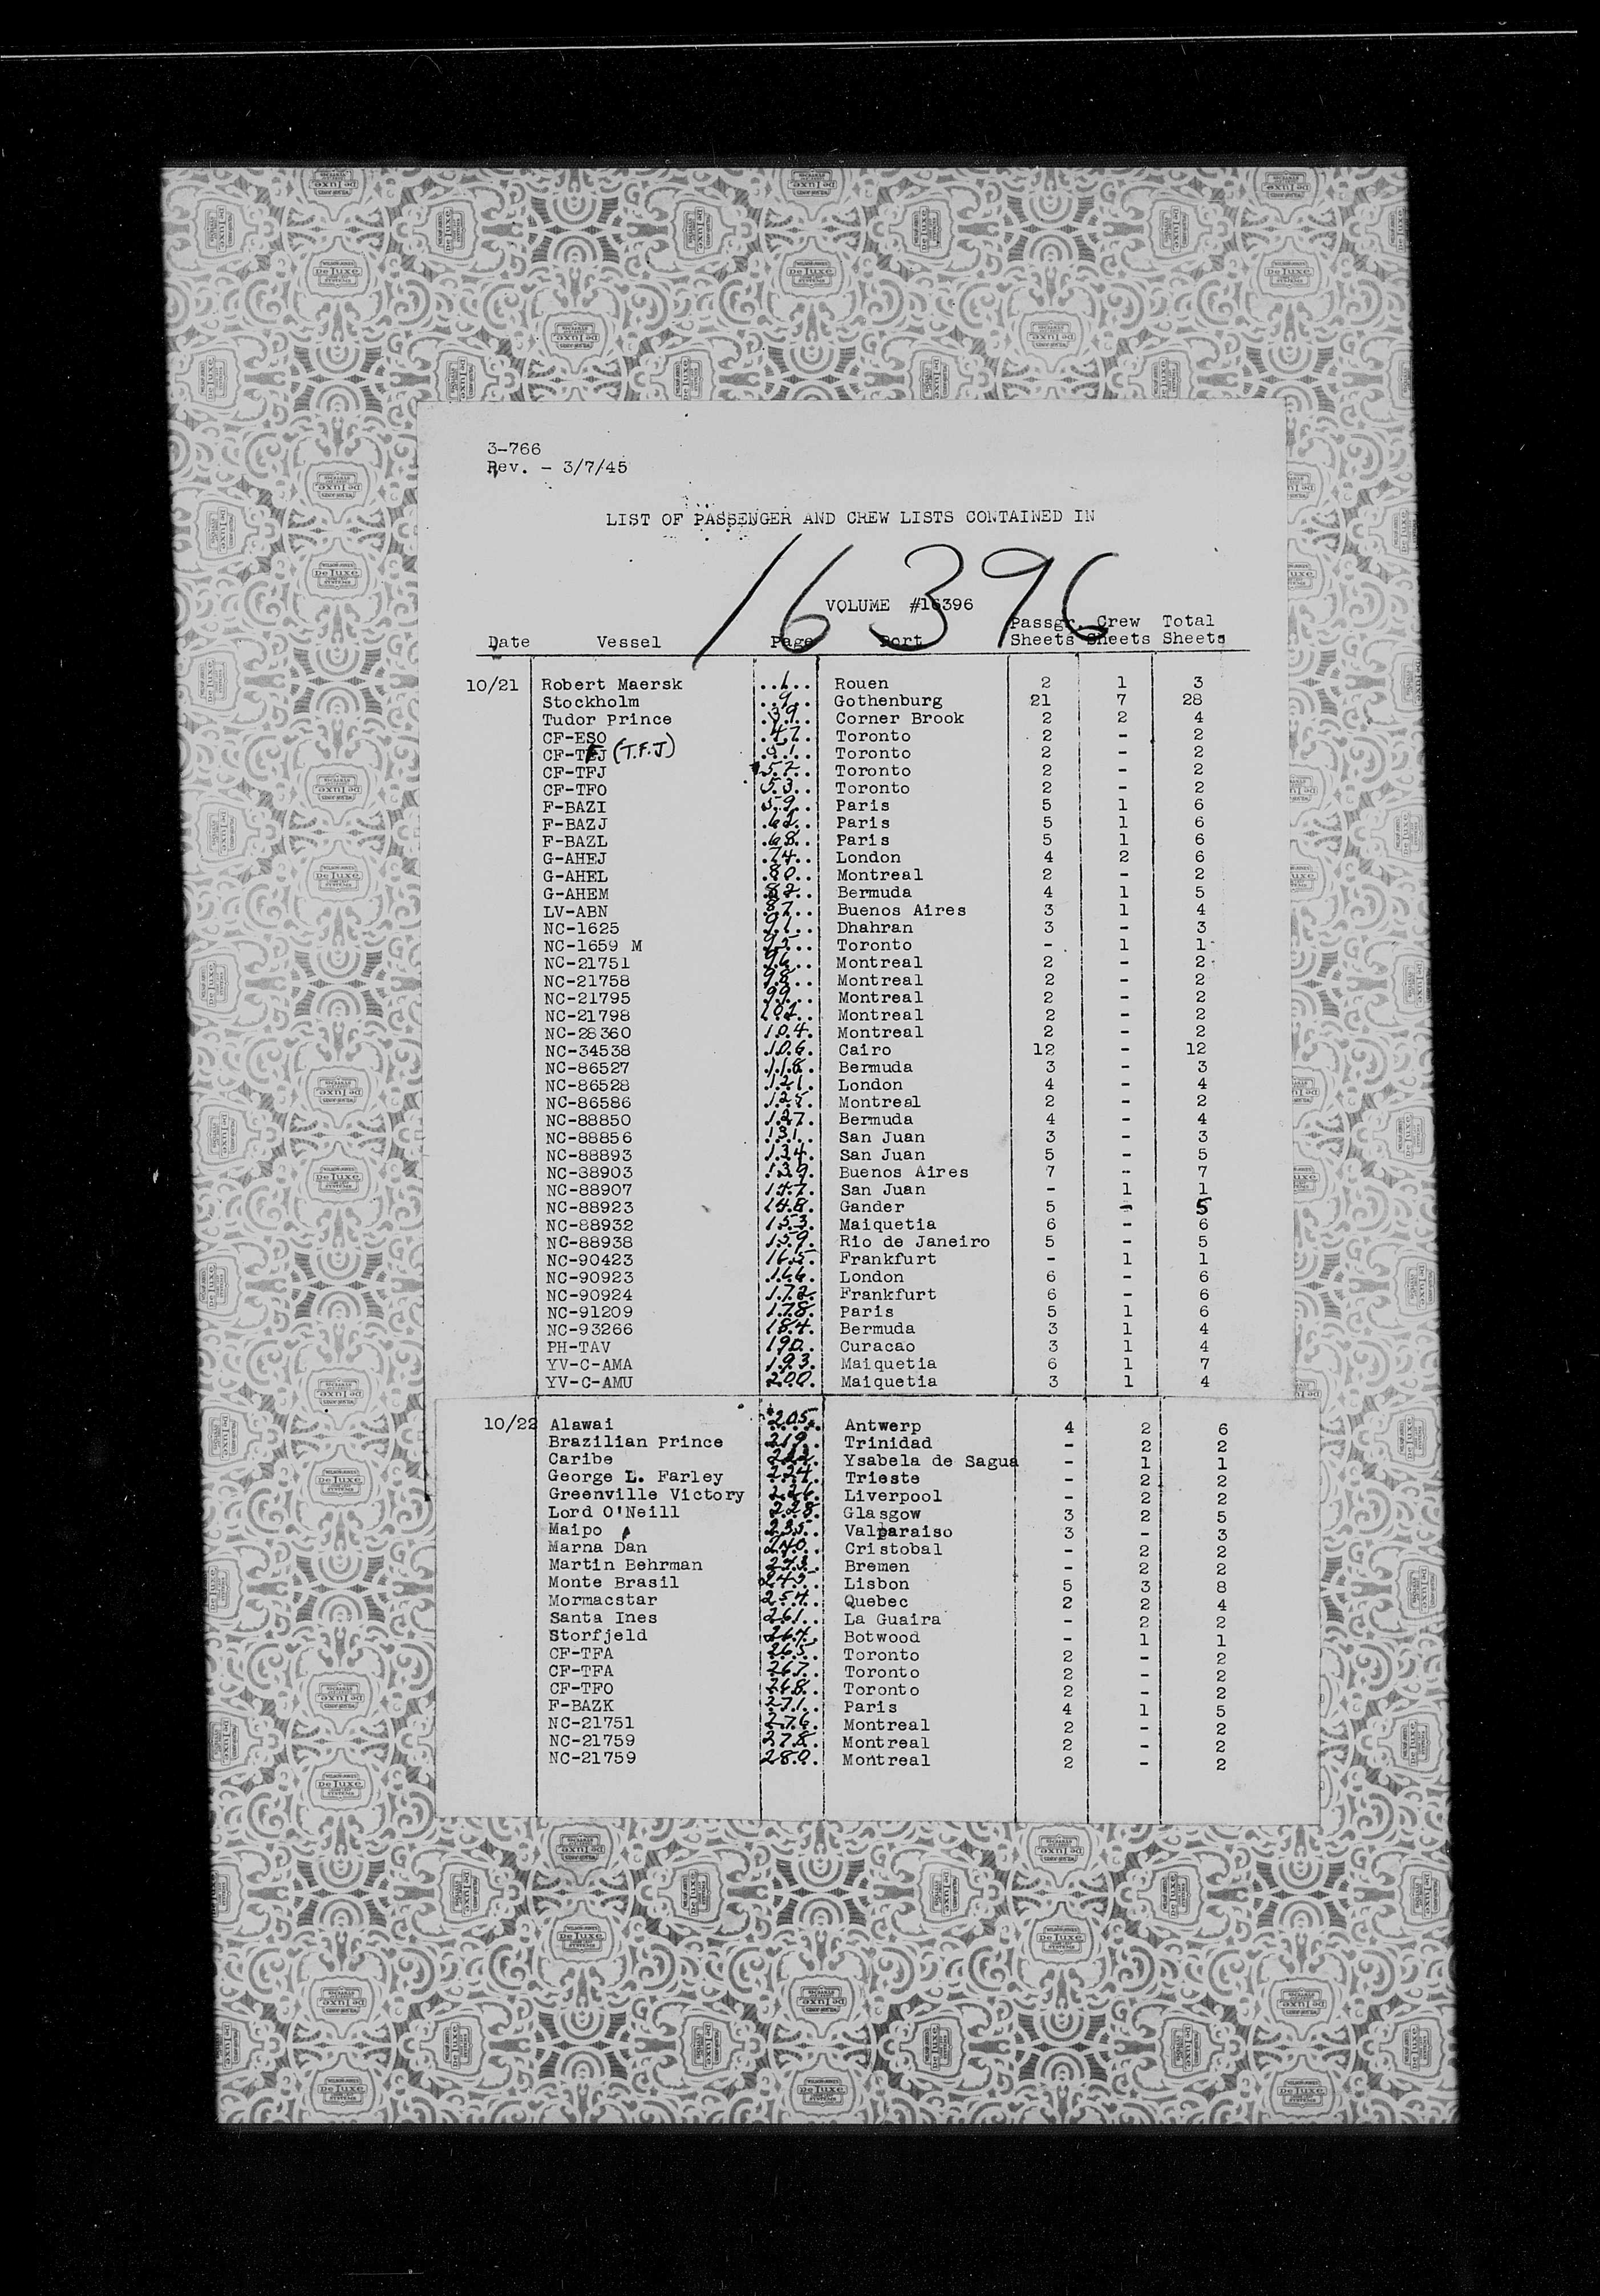 3-766
Rev. - 3/7/45
LIST OF PASSENGER AND CREW LISTS CONTAINED IN
16396
VOLUME #16396
Date Vessel Page Port Passgr. Sheets Crew Sheets Total Sheets
10/21 Robert Maersk 1 Rouen 2 1 3
Stockholm 9 Gothenburg 21 7 28
Tudor Prince 39 Corner Brook 2 2 4
CF-ESO 47 Toronto 2 - 2
CF-TFJ (T.F.J) 51 Toronto 2 - 2
CF-TFJ Toronto 2 - 2
CF-TFO 53 Toronto 2 - 2
F-BAZI 59 Paris 5 1 6
F-BAZJ 62 Paris 5 1 6
F-BAZL 68 Paris 5 1 6
G-AHEJ 74 London 4 2 6
G-AHEL 80 Montreal 2 - 2
G-AHEM 82 Bermuda 4 1 5
LV-ABN 87 Buenos Aires 3 1 4
NC-1625 Dhahran 3 - 3
NC-1659 M 95 Toronto - 1 1
NC-21751 96 Montreal 2 - 2
NC-21758 98 Montreal 2 - 2
NC-21795 99 Montreal 2 - 2
NC-21798 102 Montreal 2 - 2
NC-28360 104 Montreal 2 - 2
NC-34538 106 Cairo 12 - 12
NC-86527 118 Bermuda 3 - 3
NC-86528 121 London 4 - 4
NC-86586 125 Montreal 2 - 2
NC-88850 127 Bermuda 4 - 4
NC-88856 131 San Juan 3 - 3
NC-88893 134 San Juan 5 - 5
NC-88903 139 Buenos Aires 7 - 7
NC-88907 147 San Juan - 1 1
NC-88923 148 Gander 5 - 5
NC-88932 153 Maiquetia 6 - 6
NC-88938 159 Rio de Janeiro 5 - 5
NC-90423 165 Frankfurt - 1 1
NC-90923 166 London 6 - 6
NC-90924 172 Frankfurt 6 - 6
NC-91209 178 Paris 5 1 6
NC-93266 184 Bermuda 3 1 4
PH-TAV 190 Curacao 3 1 4
YV-C-AMA 193 Maiquetia 6 1 7
YV-C-AMU 200 Maiquetia 3 1 4
10/22 Alawai 205 Antwerp 4 2 6
Brazilian Prince 219 Trinidad - 2 2
Caribe Ysabela de Sagua - 1 1
George L. Farley 224 Trieste - 2 2
Greenville Victory 226 Liverpool - 2 2
Lord O'Neill 228 Glasgow 3 2 5
Maipo 235 Valparaiso 3 - 3
Marna Dan 240 Cristobal - 2 2
Martin Behrman 243 Bremen - 2 2
Monte Brasil 245 Lisbon 5 3 8
Mormacstar 254 Quebec 2 2 4
Santa Ines 261 La Guaira - 2 2
Storfjeld 264 Botwood - 1 1
CF-TFA 265 Toronto 2 - 2
CF-TFA 267 Toronto 2 - 2
CF-TFO 268 Toronto 2 - 2
F-BAZK 271 Paris 4 1 5
NC-21751 276 Montreal 2 - 2
NC-21759 278 Montreal 2 - 2
NC-21759 280 Montreal 2 - 2